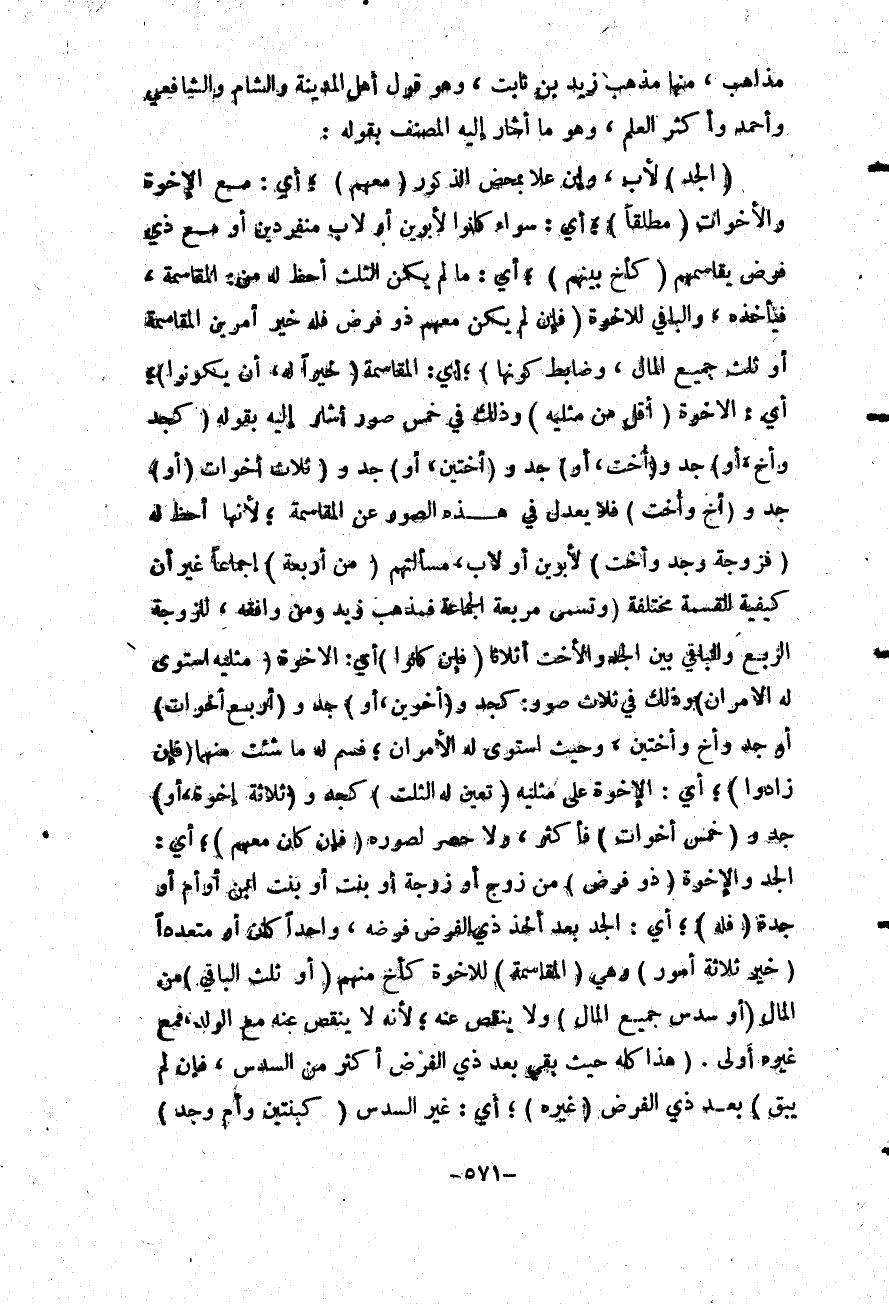 مذاهب ، منها مذهب زيد بن ثابت ، وهو قول أهل المدينة والشام والشافعي
وأحمد وأكثر العلم ، وهو ما أشار إليه المصنف بقوله :
( الجد ) لأب ، وإن علا بمحض الذكور ( معهم ) ؛ أي : مع الإخوة
والأخوات ( مطلقاً ) ؛ أي : سواء كانوا لأبوين أو لاب منفردين أو مع ذي
فرض يقاسمهم ( كأخ بينهم ) ؛ أي : ما لم يكن الثلث أحظ له من المقاسمة ،
فيأخذه ، والباقي للاخوة ( فإن لم يكن معهم ذو فرض فله خير أمرين المقاسمة
أو ثلث جميع المال ، وضابط كونها ) ؛ أي : المقاسمة ( خيراً له، أن يكونوا ) ؛
أي : الاخوة ( أقل من مثليه ) وذلك في خمس صور أشار إليه بقوله ( كجد
وأخ، أو ) جد و ( أُخت، أو ) جد و ( أختين، أو ) جد و ( ثلاث أخوات ( أو )
جد و ( أخ وأُخت ) فلا يعدل في هـذه الصور عن المقاسمة ؛ لأنها أحظ له
( فزوجة وجد وأخت ) لأبوين أو لاب، مسألتهم ( من أربعة ) إجماعاً غير أن
كيفية القسمة مختلفة ( وتسمى مربعة الجماعة فمذهب زيد ومن وافقه ، للزوجة
الربع والباقي بين الجد والأخت أثلاثا ( فإن كانوا ) أي : الاخوة ( مثليه استوى
له الامران ) وذلك في ثلاث صور : كجد و ( أخوين، أو ) جد و ( أربع أخوات )
أو جد وأخ وأختين ، وحيث استوى له الأمران ؛ فسم له ما شئت منهما ( فإن
زادوا ) ؛ أي : الإخوة على مثليه ( تعين له الثلث ) كجد و ( ثلاثة إخوة، أو )
جد و ( خمس أخوات ) فأكثر ، ولا حصر لصوره ( فإن كان معهم ) ؛ أي :
الجد والإخوة ( ذو فرض ) من زوج أو زوجة أو بنت أو بنت ابن أو أم أو
جدة ( فله ) ؛ أي : الجد بعد أخذ ذي الفرض فرضه ، واحداً كان أو متعدداً
( خير ثلاثة أمور ) وهي ( المقاسمة ) للاخوة كأخ منهم ( أو ثلث الباقي ) من
المال ( أو سدس جميع المال ) ولا ينقص عنه ؛ لأنه لا ينقص عنه مع الولد، فمع
غيره أولى . ( هذا كله حيث بقي بعد ذي الفرض أكثر من السدس ، فإن لم
يبق ) بعد ذي الفرض ( غيره ) ؛ أي : غير السدس ( كبنتين وأم وجد )
-٥٧١-